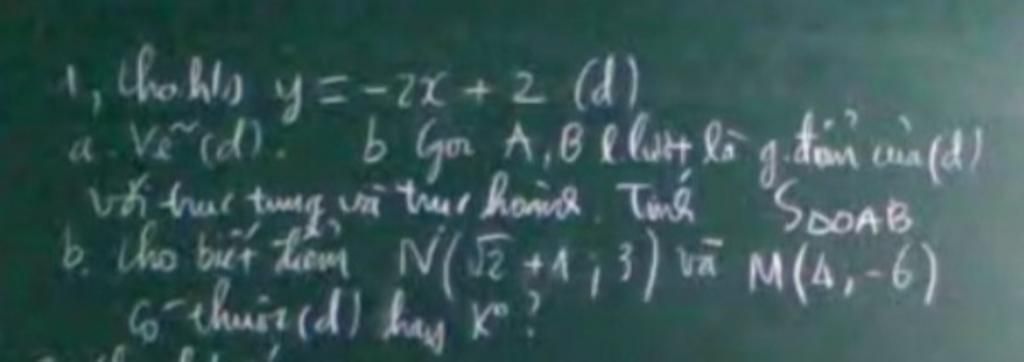 1, Cho h/s y = -2x + 2 (d)
a. Vẽ (d). b Gọi A, B l lượt là g. điểm của (d)
với trục tung và trục hoành. Tính SΔOAB
b. Cho biết điểm N(√2 + 1 ; 3) và M(4, -6)
Có thuộc (d) hay Ko?